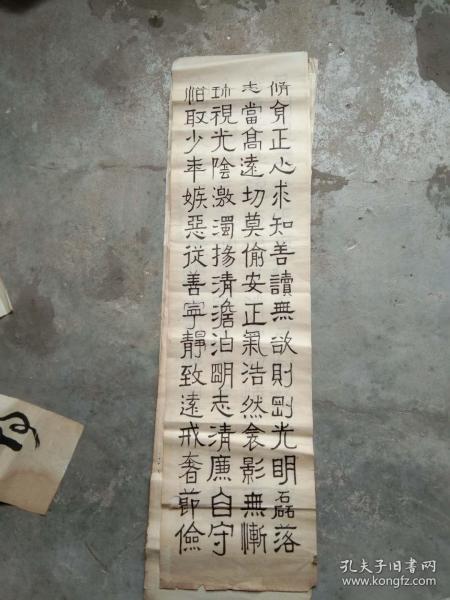 脩身正心求知善讀無欲則剛光明磊落
志當髙遠切莫偷安正氣浩然衾影無慚
珎視光陰激濁揚清澹泊明志清廉自守
惜取少年嫉惡從善寧靜致遠戒奢節儉
孔夫子旧书网
www.kongfz.com